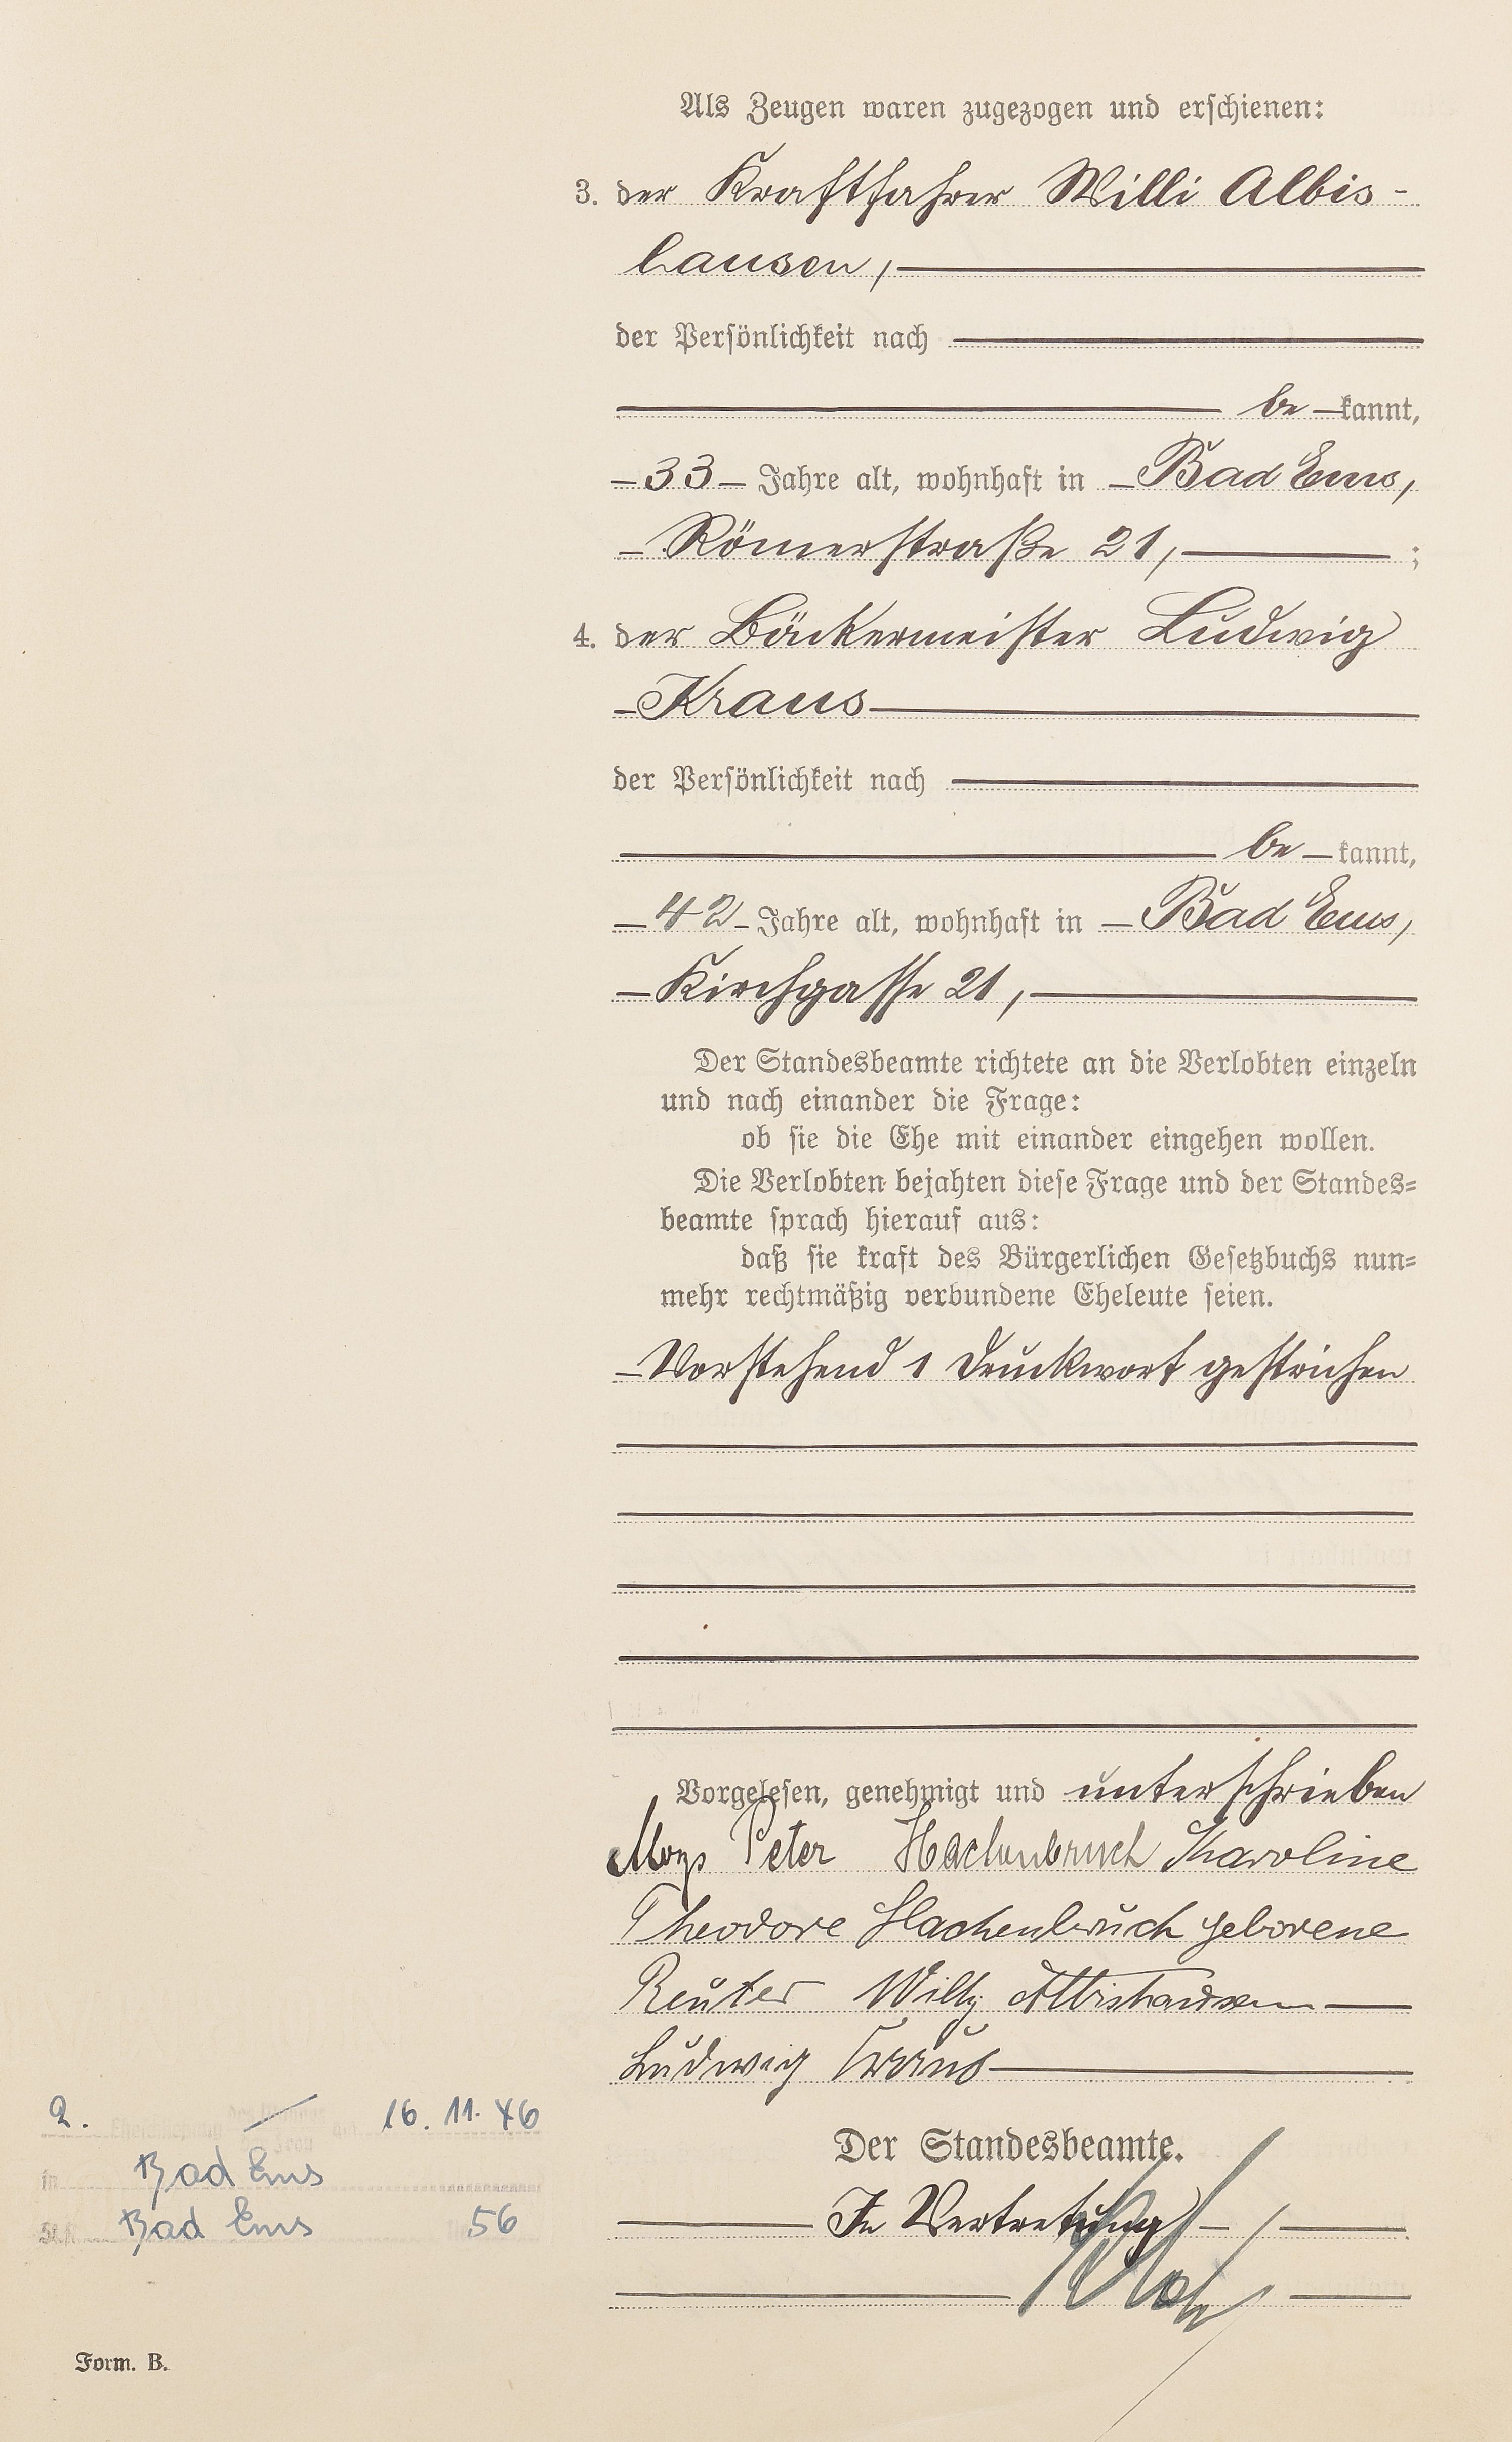 Als Zeugen waren zugezogen und erschienen:
3. der Kraftfahrer Willi Albis-
hausen,
der Persönlichkeit nach
be kannt,
33 Jahre alt, wohnhaft in Bad Ems,
Römerstraße 21, ;
4. der Bäckermeister Ludwig
Kraus
der Persönlichkeit nach
be kannt,
42 Jahre alt, wohnhaft in Bad Ems,
Kirchgasse 21,
Der Standesbeamte richtete an die Verlobten einzeln
und nach einander die Frage:
ob sie die Ehe mit einander eingehen wollen.
Die Verlobten bejahten diese Frage und der Standes-
beamte sprach hierauf aus:
daß sie kraft des Bürgerlichen Gesetzbuchs nun-
mehr rechtmäßig verbundene Eheleute seien.
Vorstehend 1 Druckwort gestrichen
Vorgelesen, genehmigt und unterschrieben
Aloys Peter Hachenbruch Karoline
Theodore Hachenbruch geborene
Reuter Willy Albishausen
Ludwig Kraus
Der Standesbeamte.
In Vertretung
2. Eheschließung am 16. 11. 46
in Bad Ems
Bad Ems 56
Form. B.